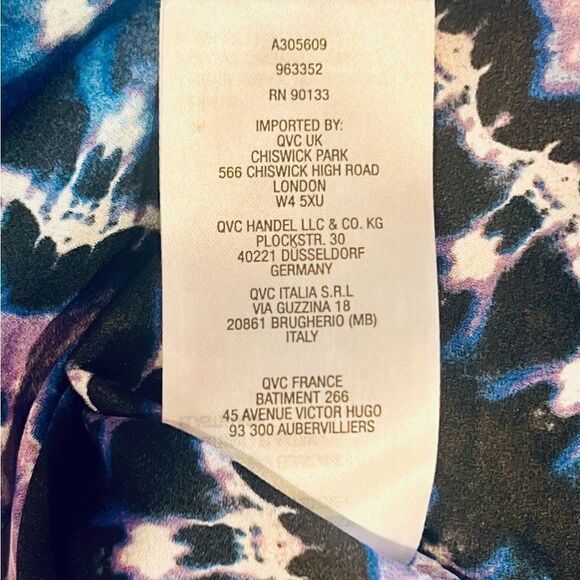 A305609
963352
RN 90133
IMPORTED BY:
QVC UK
CHISWICK PARK
566 CHISWICK HIGH ROAD
LONDON
W4 5XU
QVC HANDEL LLC & CO. KG
PLOCKSTR. 30
40221 DÜSSELDORF
GERMANY
QVC ITALIA S.R.L
VIA GUZZINA 18
20861 BRUGHERIO (MB)
ITALY
QVC FRANCE
BATIMENT 266
45 AVENUE VICTOR HUGO
93 300 AUBERVILLIERS